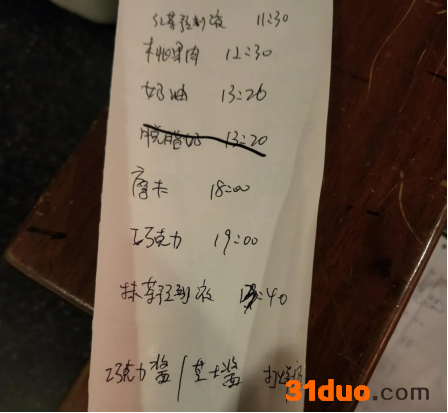 红茶轻制液 11:30
木瓜果肉 12:30
奶油 13:20
脱脂奶 13:20
摩卡 18:00
巧克力 19:00
抹茶轻制液 :40
巧克力酱/芝士酱
31duo.com